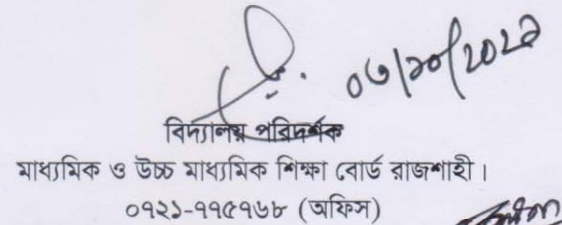 ০৩/১০/২০২১
বিদ্যালয় পরিদর্শক
মাধ্যমিক ও উচ্চ মাধ্যমিক শিক্ষা বোর্ড রাজশাহী।
০৭২১-৭৭৫৭৬৮ (অফিস)